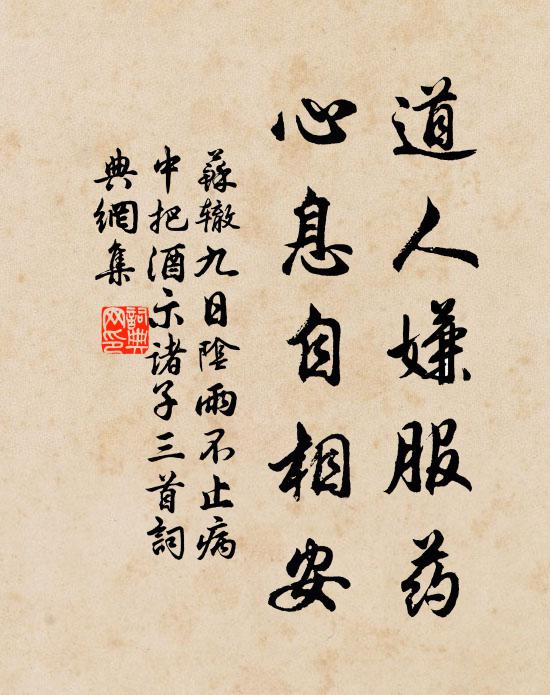 道人嫌服药
心息自相安
蘇辙九日陰雨不止病
中把酒示诸子三首詞
典網集
詞典
网印